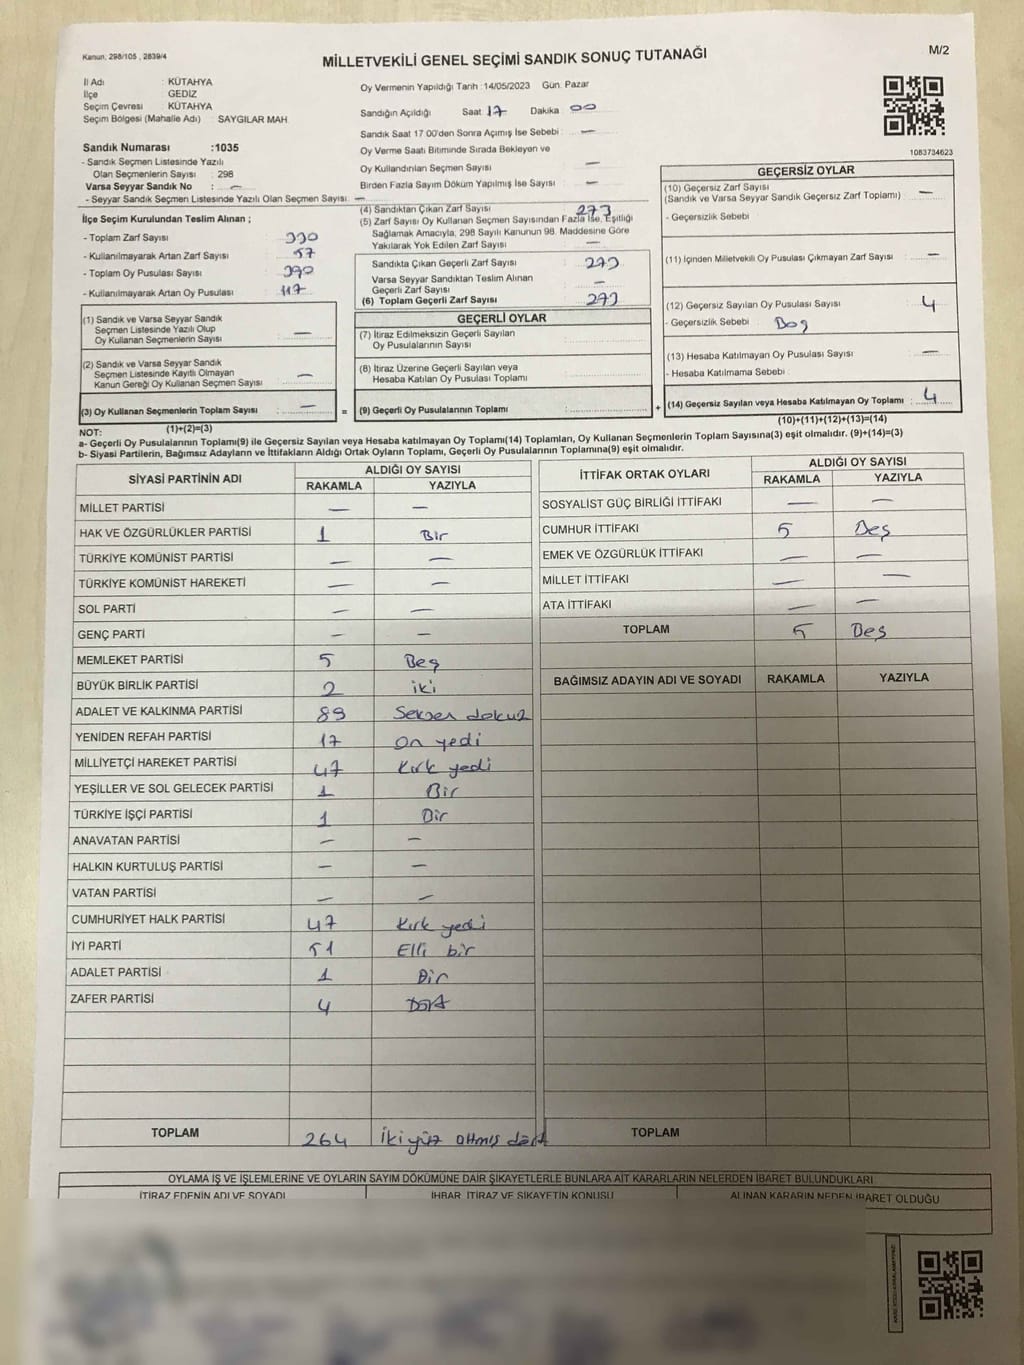 Kanun, 298/105 , 2839/4
MİLLETVEKİLİ GENEL SEÇİMİ SANDIK SONUÇ TUTANAĞI
M/2
İl Adı : KÜTAHYA
İlçe GEDİZ
Seçim Çevresi : KÜTAHYA
Seçim Bölgesi (Mahalle Adı) SAYGILAR MAH.
Oy Vermenin Yapıldığı Tarih : 14/05/2023 Gün: Pazar
Sandığın Açıldığı Saat 17 Dakika 00
Sandık Saat 17 00'den Sonra Açımış İse Sebebi : —
Oy Verme Saati Bitiminde Sırada Bekleyen ve
Oy Kullandırılan Seçmen Sayısı —
Birden Fazla Sayım Döküm Yapılmış İse Sayısı —
1083734623
Sandık Numarası :1035
- Sandık Seçmen Listesinde Yazılı
Olan Seçmenlerin Sayısı : 298
Varsa Seyyar Sandık No : —
- Seyyar Sandık Seçmen Listesinde Yazılı Olan Seçmen Sayısı. —
İlçe Seçim Kurulundan Teslim Alınan ;
- Toplam Zarf Sayısı : 330
- Kullanılmayarak Artan Zarf Sayısı : 57
- Toplam Oy Pusulası Sayısı : 390
- Kullanılmayarak Artan Oy Pusulası : 117
(1) Sandık ve Varsa Seyyar Sandık
Seçmen Listesinde Yazılı Olup
Oy Kullanan Seçmenlerin Sayısı —
(2) Sandık ve Varsa Seyyar Sandık
Seçmen Listesinde Kayıtlı Olmayan
Kanun Gereği Oy Kullanan Seçmen Sayısı —
(3) Oy Kullanan Seçmenlerin Toplam Sayısı : —
(1)+(2)=(3)
(4) Sandıktan Çıkan Zarf Sayısı 273
(5) Zarf Sayısı Oy Kullanan Seçmen Sayısından Fazla İse, Eşitliği
Sağlamak Amacıyla, 298 Sayılı Kanunun 98. Maddesine Göre
Yakılarak Yok Edilen Zarf Sayısı —
Sandıkta Çıkan Geçerli Zarf Sayısı 273
Varsa Seyyar Sandıktan Teslim Alınan
Geçerli Zarf Sayısı —
(6) Toplam Geçerli Zarf Sayısı 273
GEÇERLİ OYLAR
(7) İtiraz Edilmeksizin Geçerli Sayılan
Oy Pusulalarının Sayısı
(8) İtiraz Üzerine Geçerli Sayılan veya
Hesaba Katılan Oy Pusulası Toplamı
= (9) Geçerli Oy Pusulalarının Toplamı +
GEÇERSİZ OYLAR
(10) Geçersiz Zarf Sayısı
(Sandık ve Varsa Seyyar Sandık Geçersiz Zarf Toplamı) —
- Geçersizlik Sebebi
(11) İçinden Milletvekili Oy Pusulası Çıkmayan Zarf Sayısı —
(12) Geçersiz Sayılan Oy Pusulası Sayısı 4
- Geçersizlik Sebebi Boş
(13) Hesaba Katılmayan Oy Pusulası Sayısı —
- Hesaba Katılmama Sebebi
(14) Geçersiz Sayılan veya Hesaba Katılmayan Oy Toplamı : 4
(10)+(11)+(12)+(13)=(14)
NOT:
a- Geçerli Oy Pusulalarının Toplamı(9) ile Geçersiz Sayılan veya Hesaba katılmayan Oy Toplamı(14) Toplamları, Oy Kullanan Seçmenlerin Toplam Sayısına(3) eşit olmalıdır. (9)+(14)=(3)
b- Siyasi Partilerin, Bağımsız Adayların ve İttifakların Aldığı Ortak Oyların Toplamı, Geçerli Oy Pusulalarının Toplamına(9) eşit olmalıdır.
SİYASİ PARTİNİN ADI ALDIĞI OY SAYISI
RAKAMLA YAZIYLA
MİLLET PARTİSİ — —
HAK VE ÖZGÜRLÜKLER PARTİSİ 1 Bir
TÜRKİYE KOMÜNİST PARTİSİ — —
TÜRKİYE KOMÜNİST HAREKETİ — —
SOL PARTİ — —
GENÇ PARTİ — —
MEMLEKET PARTİSİ 5 Beş
BÜYÜK BİRLİK PARTİSİ 2 iki
ADALET VE KALKINMA PARTİSİ 89 Seksen dokuz
YENİDEN REFAH PARTİSİ 17 On yedi
MİLLİYETÇİ HAREKET PARTİSİ 47 Kırk yedi
YEŞİLLER VE SOL GELECEK PARTİSİ 1 Bir
TÜRKİYE İŞÇİ PARTİSİ 1 Bir
ANAVATAN PARTİSİ — —
HALKIN KURTULUŞ PARTİSİ — —
VATAN PARTİSİ — —
CUMHURİYET HALK PARTİSİ 47 Kırk yedi
İYİ PARTİ 51 Elli bir
ADALET PARTİSİ 1 Bir
ZAFER PARTİSİ 4 Dört
TOPLAM 264 İkiyüz altmış dört
İTTİFAK ORTAK OYLARI ALDIĞI OY SAYISI
RAKAMLA YAZIYLA
SOSYALİST GÜÇ BİRLİĞİ İTTİFAKI — —
CUMHUR İTTİFAKI 5 Beş
EMEK VE ÖZGÜRLÜK İTTİFAKI — —
MİLLET İTTİFAKI — —
ATA İTTİFAKI — —
TOPLAM 5 Beş
BAĞIMSIZ ADAYIN ADI VE SOYADI RAKAMLA YAZIYLA
TOPLAM
OYLAMA İŞ VE İŞLEMLERİNE VE OYLARIN SAYIM DÖKÜMÜNE DAİR ŞİKAYETLERLE BUNLARA AİT KARARLARIN NELERDEN İBARET BULUNDUKLARI
İTİRAZ EDENİN ADI VE SOYADI İHBAR, İTİRAZ VE ŞİKAYETİN KONUSU ALINAN KARARIN NEDEN İBARET OLDUĞU